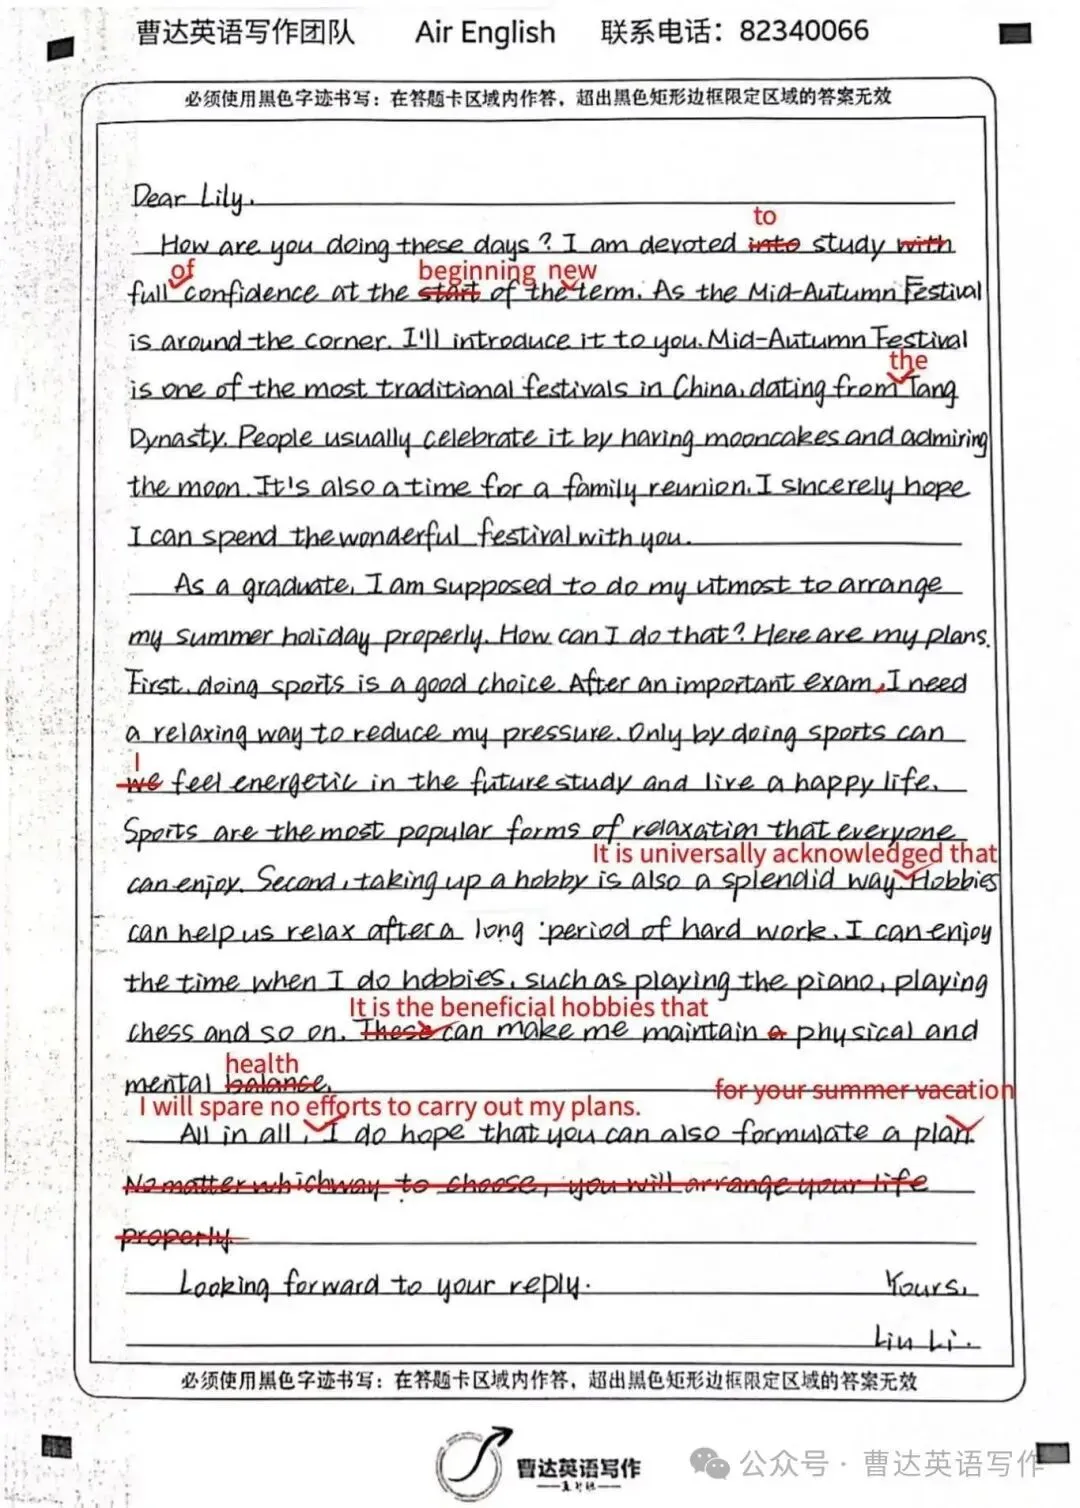 曹达英语写作团队 Air English 联系电话：82340066
必须使用黑色字迹书写：在答题卡区域内作答，超出黑色矩形边框限定区域的答案无效
Dear Lily,
to
How are you doing these days? I am devoted into study with
of beginning new
full confidence at the start of the term. As the Mid-Autumn Festival
is around the corner. I'll introduce it to you. Mid-Autumn Festival
the
is one of the most traditional festivals in China, dating from Tang
Dynasty. People usually celebrate it by having mooncakes and admiring
the moon. It's also a time for a family reunion. I sincerely hope
I can spend the wonderful festival with you.
As a graduate, I am supposed to do my utmost to arrange
my summer holiday properly. How can I do that? Here are my plans.
First, doing sports is a good choice. After an important exam, I need
a relaxing way to reduce my pressure. Only by doing sports can
I
we feel energetic in the future study and live a happy life.
Sports are the most popular forms of relaxation that everyone
It is universally acknowledged that
can enjoy. Second, taking up a hobby is also a splendid way. Hobbies
can help us relax after a long period of hard work. I can enjoy
the time when I do hobbies, such as playing the piano, playing
It is the beneficial hobbies that
chess and so on. These can make me maintain a physical and
health
mental balance.
for your summer vacation
I will spare no efforts to carry out my plans.
All in all, I do hope that you can also formulate a plan.
No matter which way to choose, you will arrange your life
properly.
Looking forward to your reply. Yours,
Lin Li.
必须使用黑色字迹书写：在答题卡区域内作答，超出黑色矩形边框限定区域的答案无效
曹达英语写作
公众号·曹达英语写作